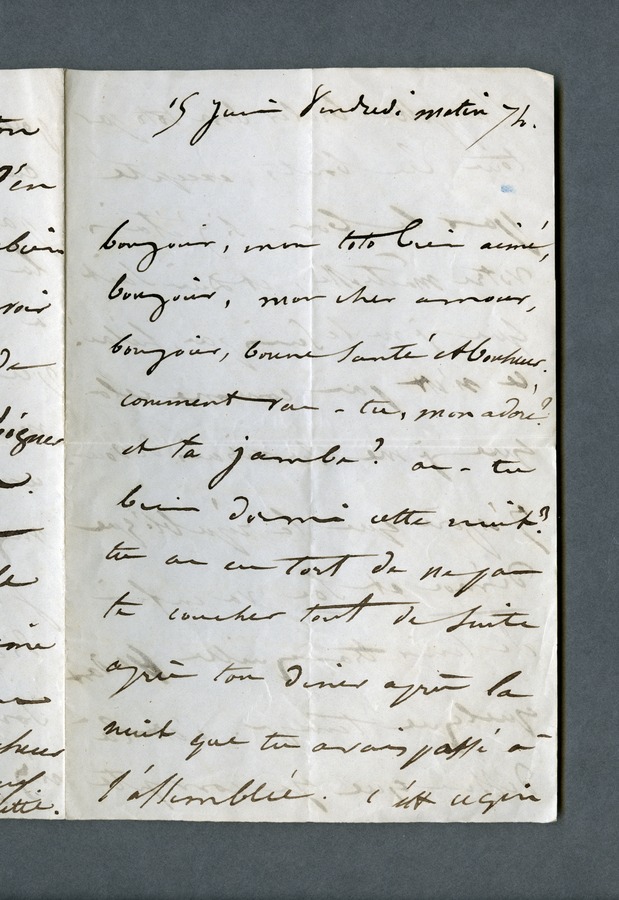 ton
d'en
bien
voir
de
soigner
15 juin Vendredi matin 7 h.
bonjour, mon toto bien aimé,
bonjour, mon cher amour,
bonjour, bonne santé et bonheur.
comment vas-tu, mon adoré?
et ta jambe? as-tu
bien dormi cette nuit?
tu as eu tort de ne pas
te coucher tout de suite
après ton diner après la
nuit que tu avais passé à
l'assemblée. c'est ce qui